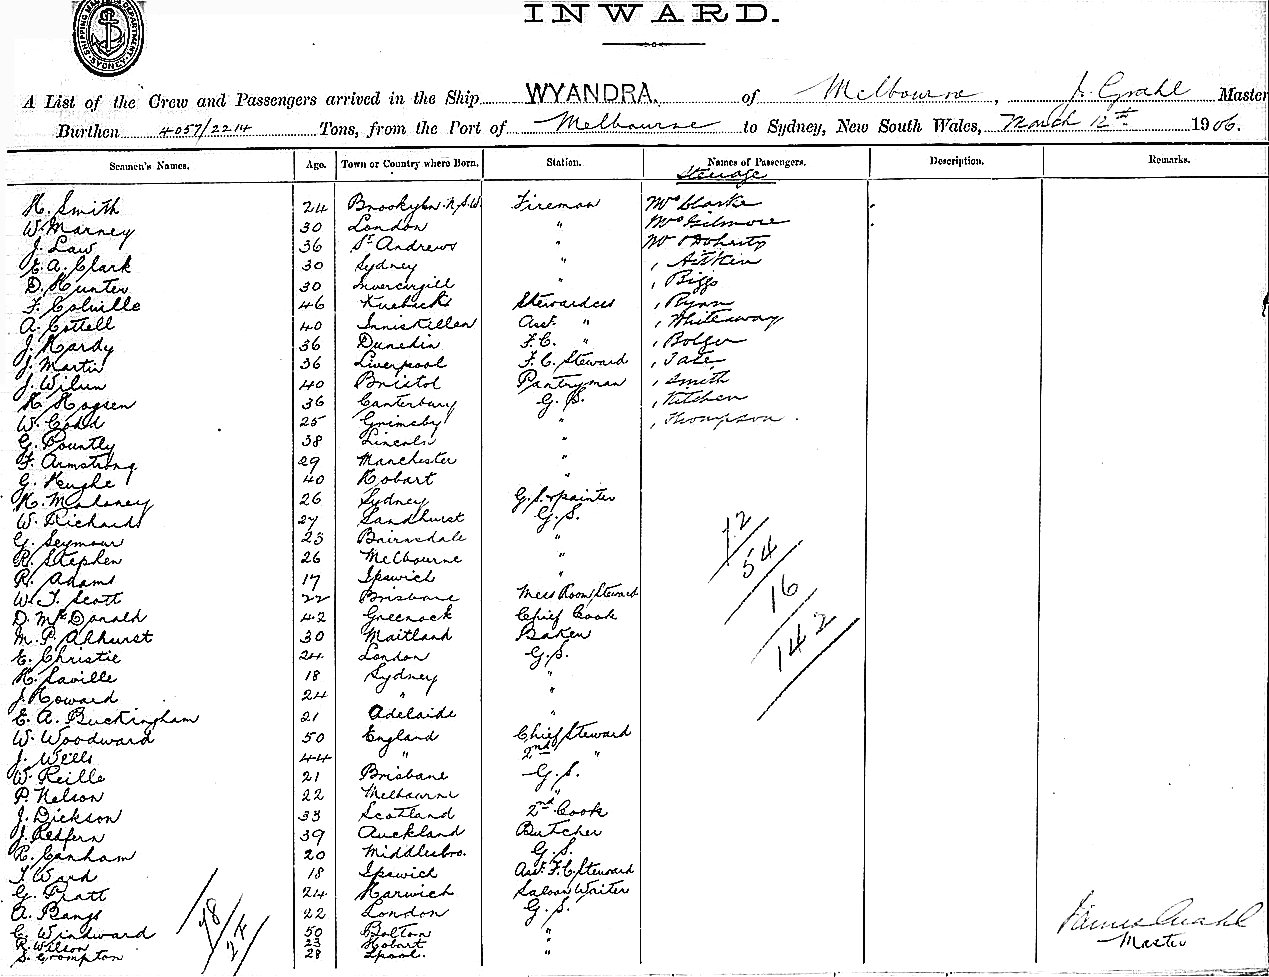 SHIPPING MASTER'S DEPARTMENT SYDNEY
INWARD.
A List of the Crew and Passengers arrived in the Ship WYANDRA. of Melbourne, J. Grahl Master
Burthen 4057/2214 Tons, from the Port of Melbourne to Sydney, New South Wales, March 12th 1906.
Seamen's Names. Age. Town or Country where Born. Station. Names of Passengers. Description. Remarks.
Steerage
H. Smith 24 Brooklyn N.S.W. Fireman Mrs Clarke
W. Marney 30 London " Mrs Gilmore
J. Law 36 St Andrews " Mr O'Doherty
E. A. Clark 30 Sydney " , Aitkin
D. Hunter 30 Invercargill , Biggs
F. Colville 46 Stewardess , Rynn
A. Cottell 40 Inniskillen Asst. " , Whiteaway
J. Hardy 36 Dunedin F.C. " , Bolger
J. Martin 36 Liverpool F.C. Steward , Tate
J. Wilson 40 Bristol Pantryman , Smith
H. Hogsen 36 Canterbury G.S. , Kitchen
W. Codd 25 Grimsby " , Thompson.
G. Pountly 38 Lincoln "
F. Armstrong 29 Manchester "
G. 40 Hobart "
H. Mahoney 26 Sydney G.S. & painter
W. Richards 27 Sandhurst G.S.
G. Seymour 23 Bairnsdale "
R. Stephen 26 Melbourne "
R. Adams 17 Ipswich
W. T. Scott 22 Brisbane Mess Room Steward
D. McDonald 42 Greenock Chief Cook
M. P. Alhurst 30 Maitland Baker
E. Christie 24 London G.S.
H. Saville 18 Sydney "
J. Howard 24 " "
E. A. Buckingham 21 Adelaide "
W. Woodward 50 England Chief Steward
J. Wells 44 " 2nd "
W. Reille 21 Brisbane G.S.
P. Nelson 22 Melbourne "
J. Dickson 33 Scotland 2nd Cook
J. Redfern 39 Auckland Butcher
R. Canham 20 Middlesbro. G.S.
T. Ward 18 Ipswich Asst. F.C. Steward
G. Pratt 24 Harwich Saloon Waiter
A. Bangs 22 London G.S.
C. Windward 50 Bolton "
R. Wilson 23 Hobart "
S. Crompton 28 Lpool. "
12/
54/
16/
142/
48/
24/
James Grahl
Master